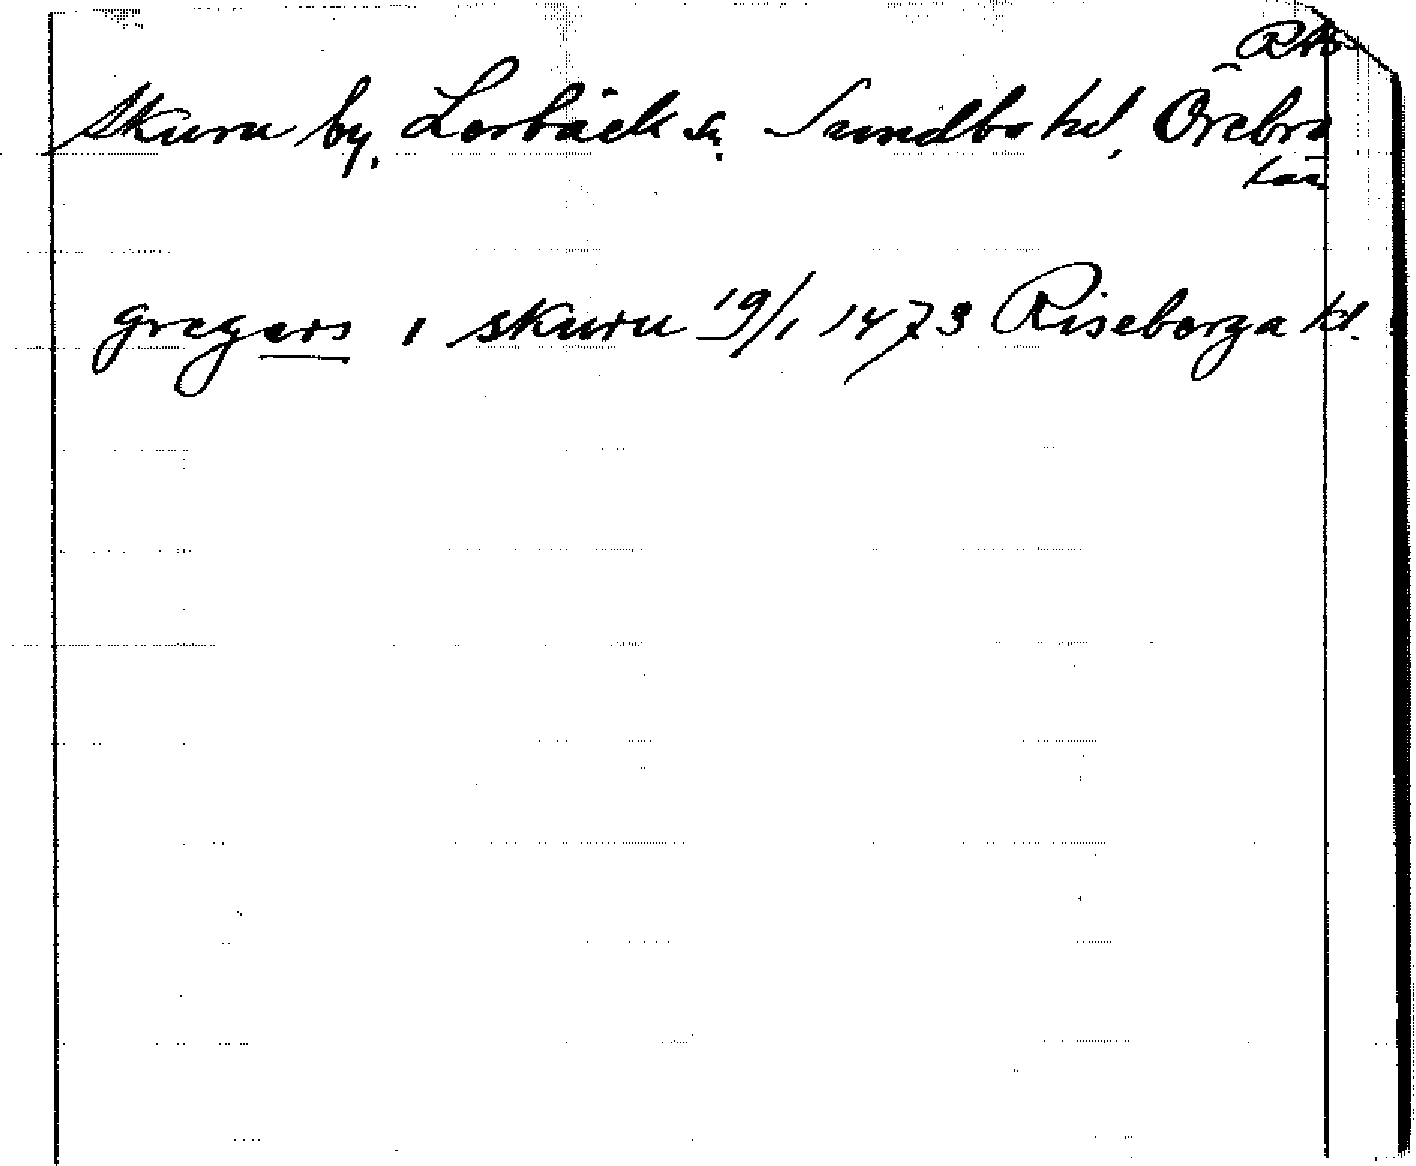 Skuru by, Lerbäck sn. Sundbo hd, Örebro
län
gregers i skuru 19/1 1473 Riseberga kl.